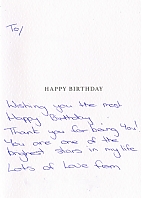 To/
HAPPY BIRTHDAY
Wishing you the most
Happy Birthday
Thank you for being You!
You are one of the
brightest stars in my life
Lots of Love from